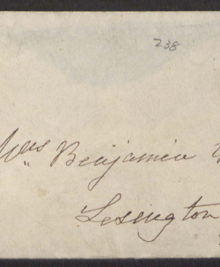 238
Mrs Benjamin
Lexington